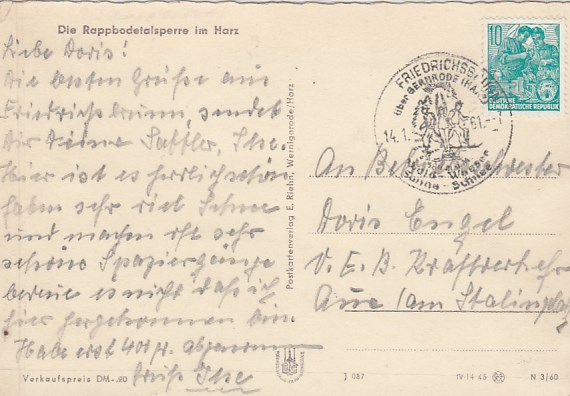 Die Rappbodetalsperre im Harz
Liebe Doris!
Die besten Grüße aus
Friedrichsbrunn, sendet
Dir Deine Sattler, Ilse.
Hier ist es herrlich schön
haben sehr viel Schnee
und machen oft sehr
schöne Spaziergänge
bereue es nicht daß ich
hier hergekommen bin
Habe erst 400 gr. abgenommen
Gruß Ilse
Verkaufspreis DM-,20
Postkartenverlag E. Riehn, Wernigerode/Harz
10
DEUTSCHE
DEMOKRATISCHE REPUBLIK
FRIEDRICHSBRUNN
über BERNRODE (HARZ)
14.1.61.-
Wald - Wasser
Sonne - Schnee
An
Doris Engel
V.E.B. Kraftverkehr
Aue (am Stalinplatz
J 087
IV-14-45
N 3/60